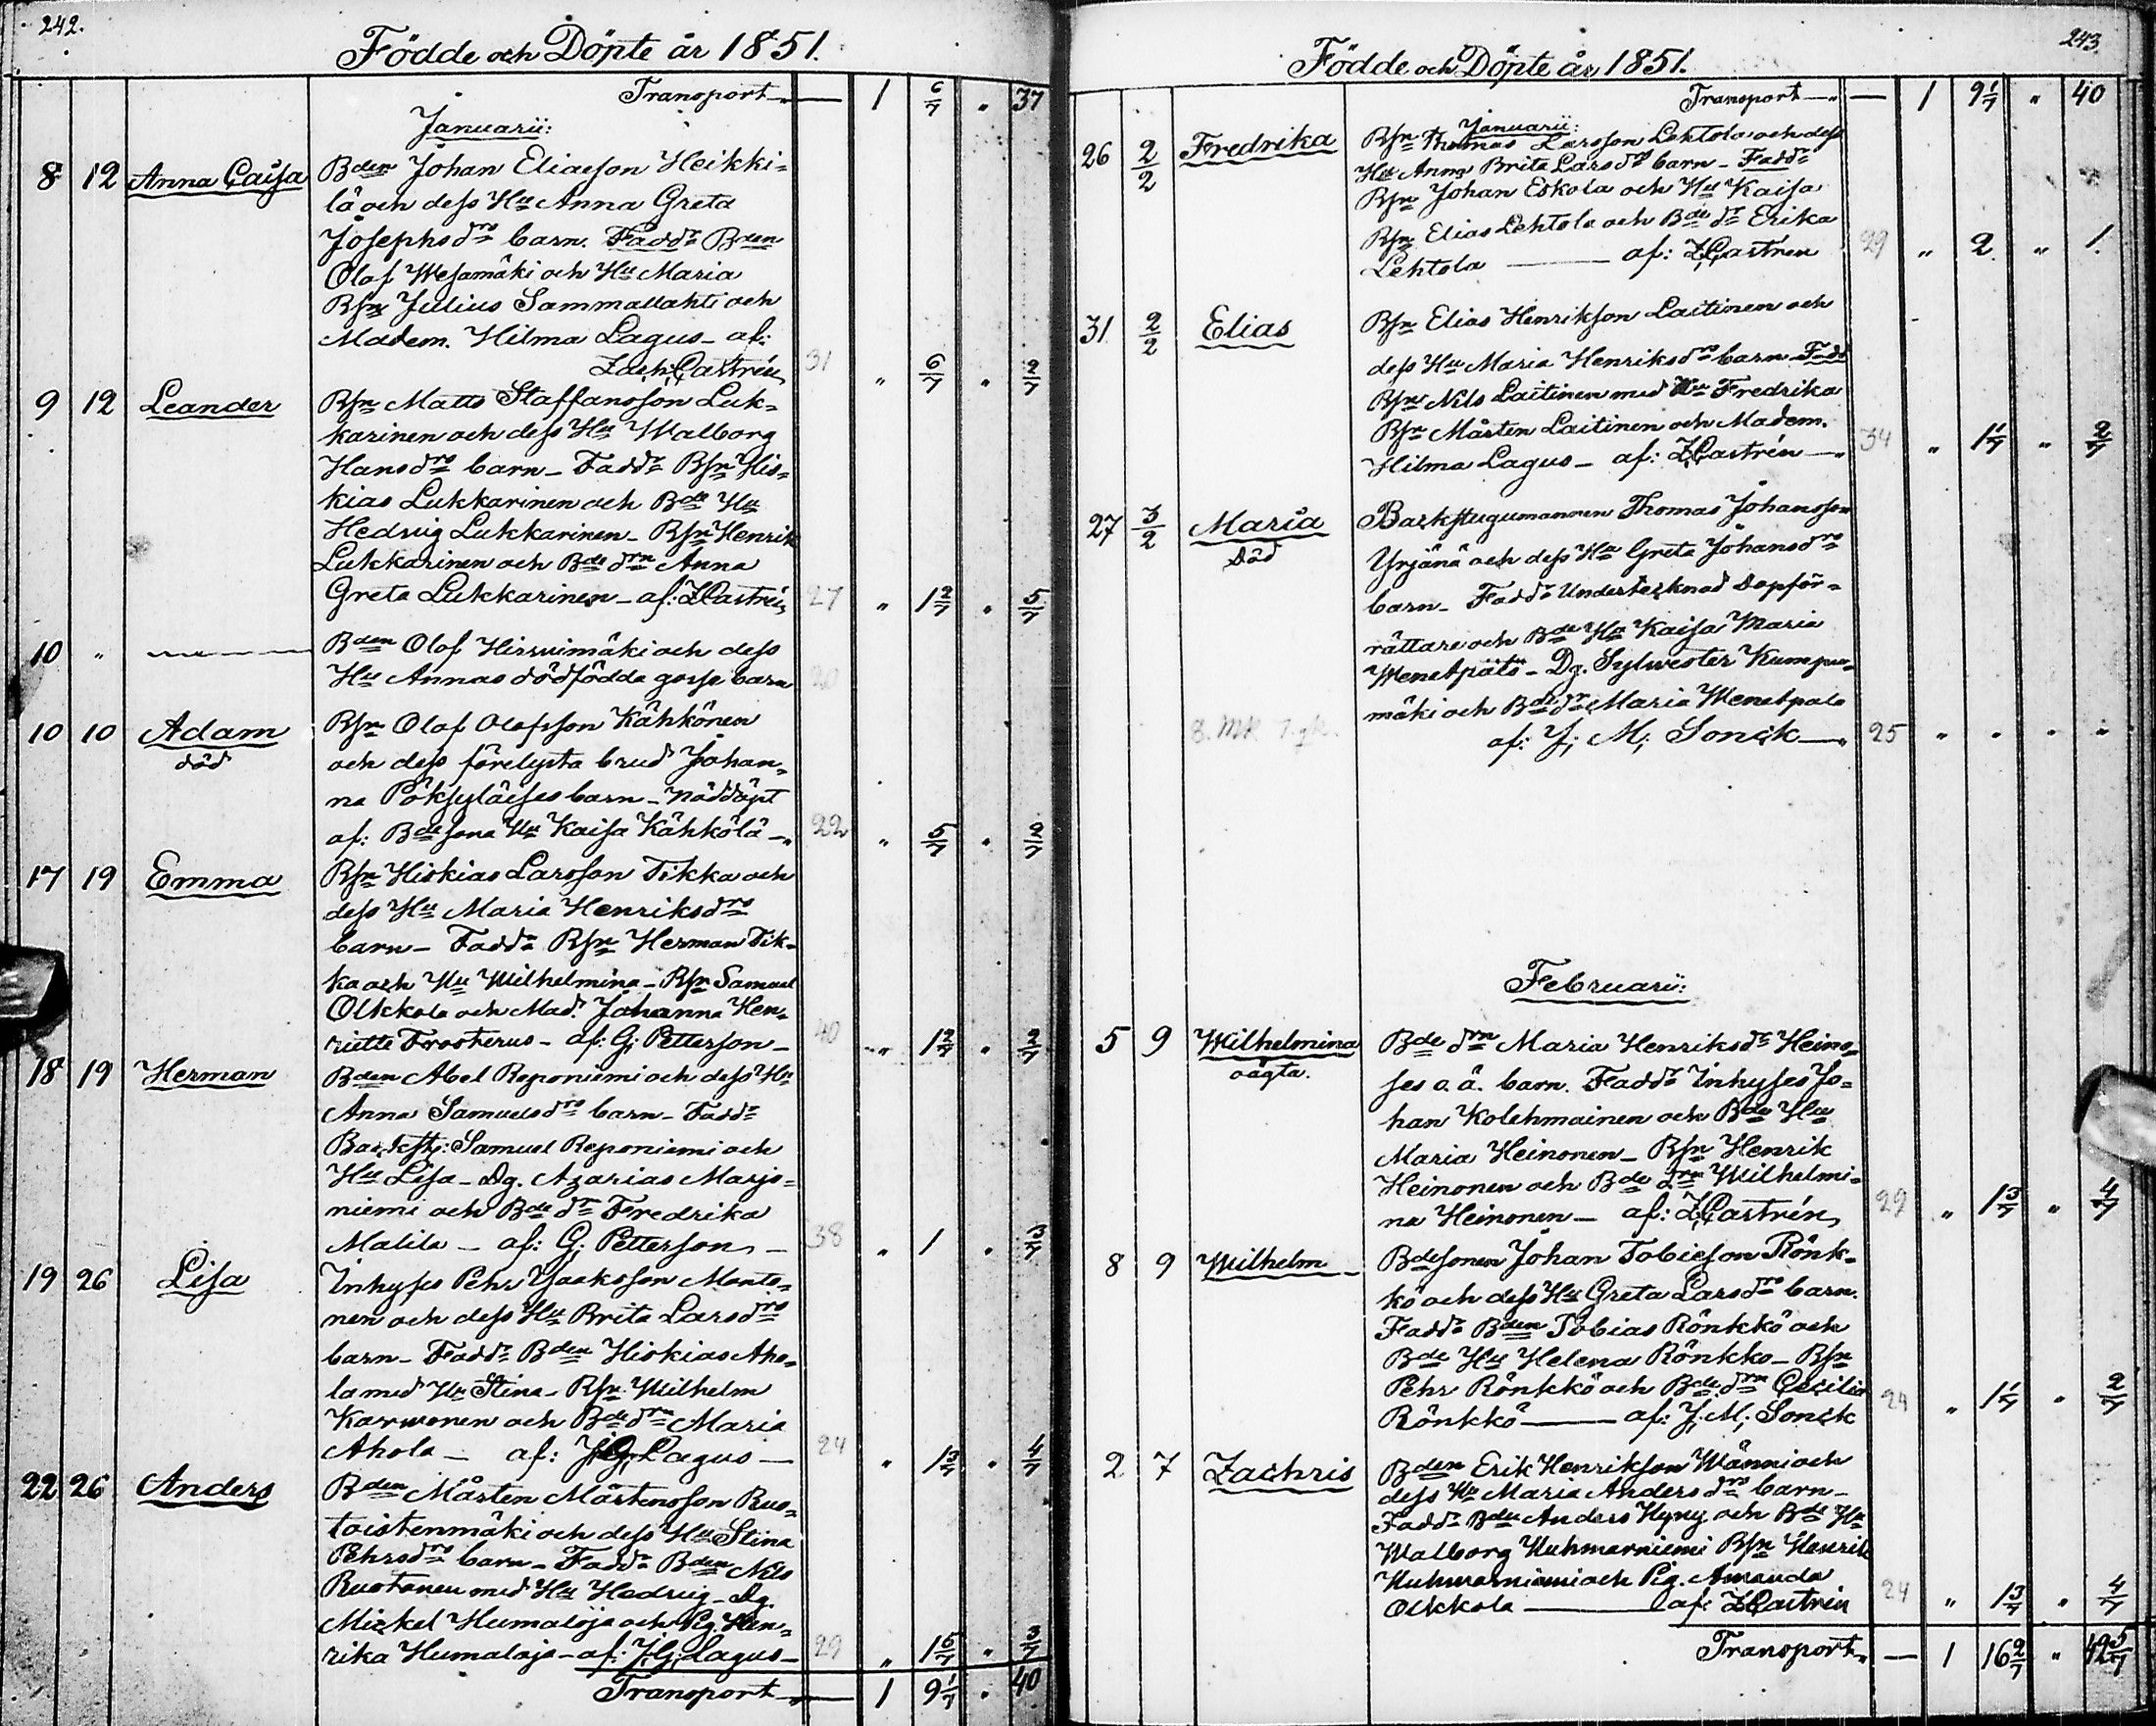 242.
Födde och Döpte år 1851.
Transport — 1 6/7 " 37
Januarii:
8 12 Anna Caisa Bden Johan Eliasson Heikki=
lä och dess Hu Anna Greta
Josephsdrs barn. Faddr Bden
Olof Wesamäki och Hu Maria
Bsn Julius Sammallahti och
Madem. Hilma Lagus – af:
Zach: Castrén 31 " 6/7 " 2/7
9 12 Leander Bsn Matts Staffansson Luk=
karinen och dess Hu Walborg
Hansdrs barn – Faddr Bsn His=
kias Lukkarinen och Bde Hu
Hedvig Lukkarinen – Bsn Henrik
Lukkarinen och Bde drn Anna
Greta Lukkarinen – af: Z Castrén 27 " 1 2/7 " 5/7
10 " Bden Olof Hirvimäki och dess
Hu Annas dödfödda gosse barn 20
10 10 Adam Bsn Olof Olofsson Kähkönen
död och dess förelysta brud Johan=
na Pöksyläises barn – nöddöpt
af: Bdesona Hu Kaisa Kähkölä – 22 " 5/7 "
17 19 Emma Bsn Hiskias Larsson Tikka och
dess Hu Maria Henriksdrs
barn – Faddr Bsn Herman Tik=
ka och Hu Wilhelmina – Bsn Samuel
Olkkola och Mad. Johanna Hen=
riette Frosterus – af: G. Petterson – 40 " 1 2/7 " 2/7
18 19 Herman Bden Abel Reponiemi och dess Hu
Anna Samuelsdrs barn – Faddr
Backst: Samuel Reponiemi och
Hu Lisa – Dg. Azarias Marjo=
niemi och Bde dr Fredrika
Malila – af: G. Petterson – 38 " 1 " 3/7
19 26 Lisa Inhyses Pehr Isaksson Manto=
nen och dess Hu Brita Larsdrs
barn – Faddr Bden Hiskias Aho=
la med Hu Stina – Bsn Wilhelm
Karvonen och Bde drn Maria
Ahola – af: J. G. Lagus – 24 " 1 3/7 " 4/7
22 26 Anders Bden Mårten Mårtensson Ruo=
toistenmäki och dess Hu Stina
Pehrsdrs barn – Faddr Bden Nils
Ruotanen med Hu Hedvig – Dg.
Mickel Humaloja och Pig. Hen=
rika Humaloja – af: J. G. Lagus – 29 " 1 5/7 " 3/7
Transport — 1 9 1/7 " 40
243.
Födde och Döpte år 1851.
Transport — 1 9 1/7 " 40
Januarii:
26 2/2 Fredrika Bsn Thomas Larsson Lehtola och dess
Hu Anna Brita Larsdrs barn – Faddr
Bsn Johan Eskola och Hu Kaisa
Bsn Elias Lehtola och Bde dr Erika
Lehtola — af: Z. Castren 29 " 2 " 1.
31 2/2 Elias Bsn Elias Henriksson Laitinen och
dess Hu Maria Henriksdrs barn – Fadd
Bsn Nils Laitinen med Hu Fredrika
Bsn Mårten Laitinen och Madem.
Hilma Lagus – af: Z. Castrén — 34 " 1 1/7 " 2/7
27 3/2 Maria Backstugumannen Thomas Johansson
död Yrjänä och dess Hu Greta Johansdrs
barn – Faddr Undertecknad Dopför=
rättare och Bde Hu Kaisa Maria
Wenetpalo – Dg. Sylvester Kumpu=
mäki och Bde dr Maria Wenetpalo
af: J. M. Sonck — 25 " " " "
Februarii:
5 9 Wilhelmina Bde drn Maria Henriksdr Heino=
oägta. ses o. ä. barn. Faddr Inhyses Jo=
han Kolehmainen och Bde Hu
Maria Heinonen – Bsn Henrik
Heinonen och Bde drn Wilhelmi=
na Heinonen – af: Z. Castrén 29 " 1 3/7 " 4/7
8 9 Wilhelm Bdesonen Johan Tobiesson Rönk=
kö och dess Hu Greta Larsdrs barn.
Faddr Bden Tobias Rönkkö och
Bde Hu Helena Rönkkö – Bsn
Pehr Rönkkö och Bde drn Cecilia
Rönkkö — af: J. M. Sonck 24 " 1 1/7 " 2/7
2 7 Zachris Bden Erik Henriksson Wänni och
dess Hu Maria Andersdrs barn –
Faddr Bden Anders Hyny och Bde Hu
Walborg Huhmarniemi Bsn Henrik
Huhmarniemi och Pig. Amanda
Olkkola — af: Z Castrén 24 " 1 3/7 " 4/7
Transport — 1 16 2/7 " 42 5/7